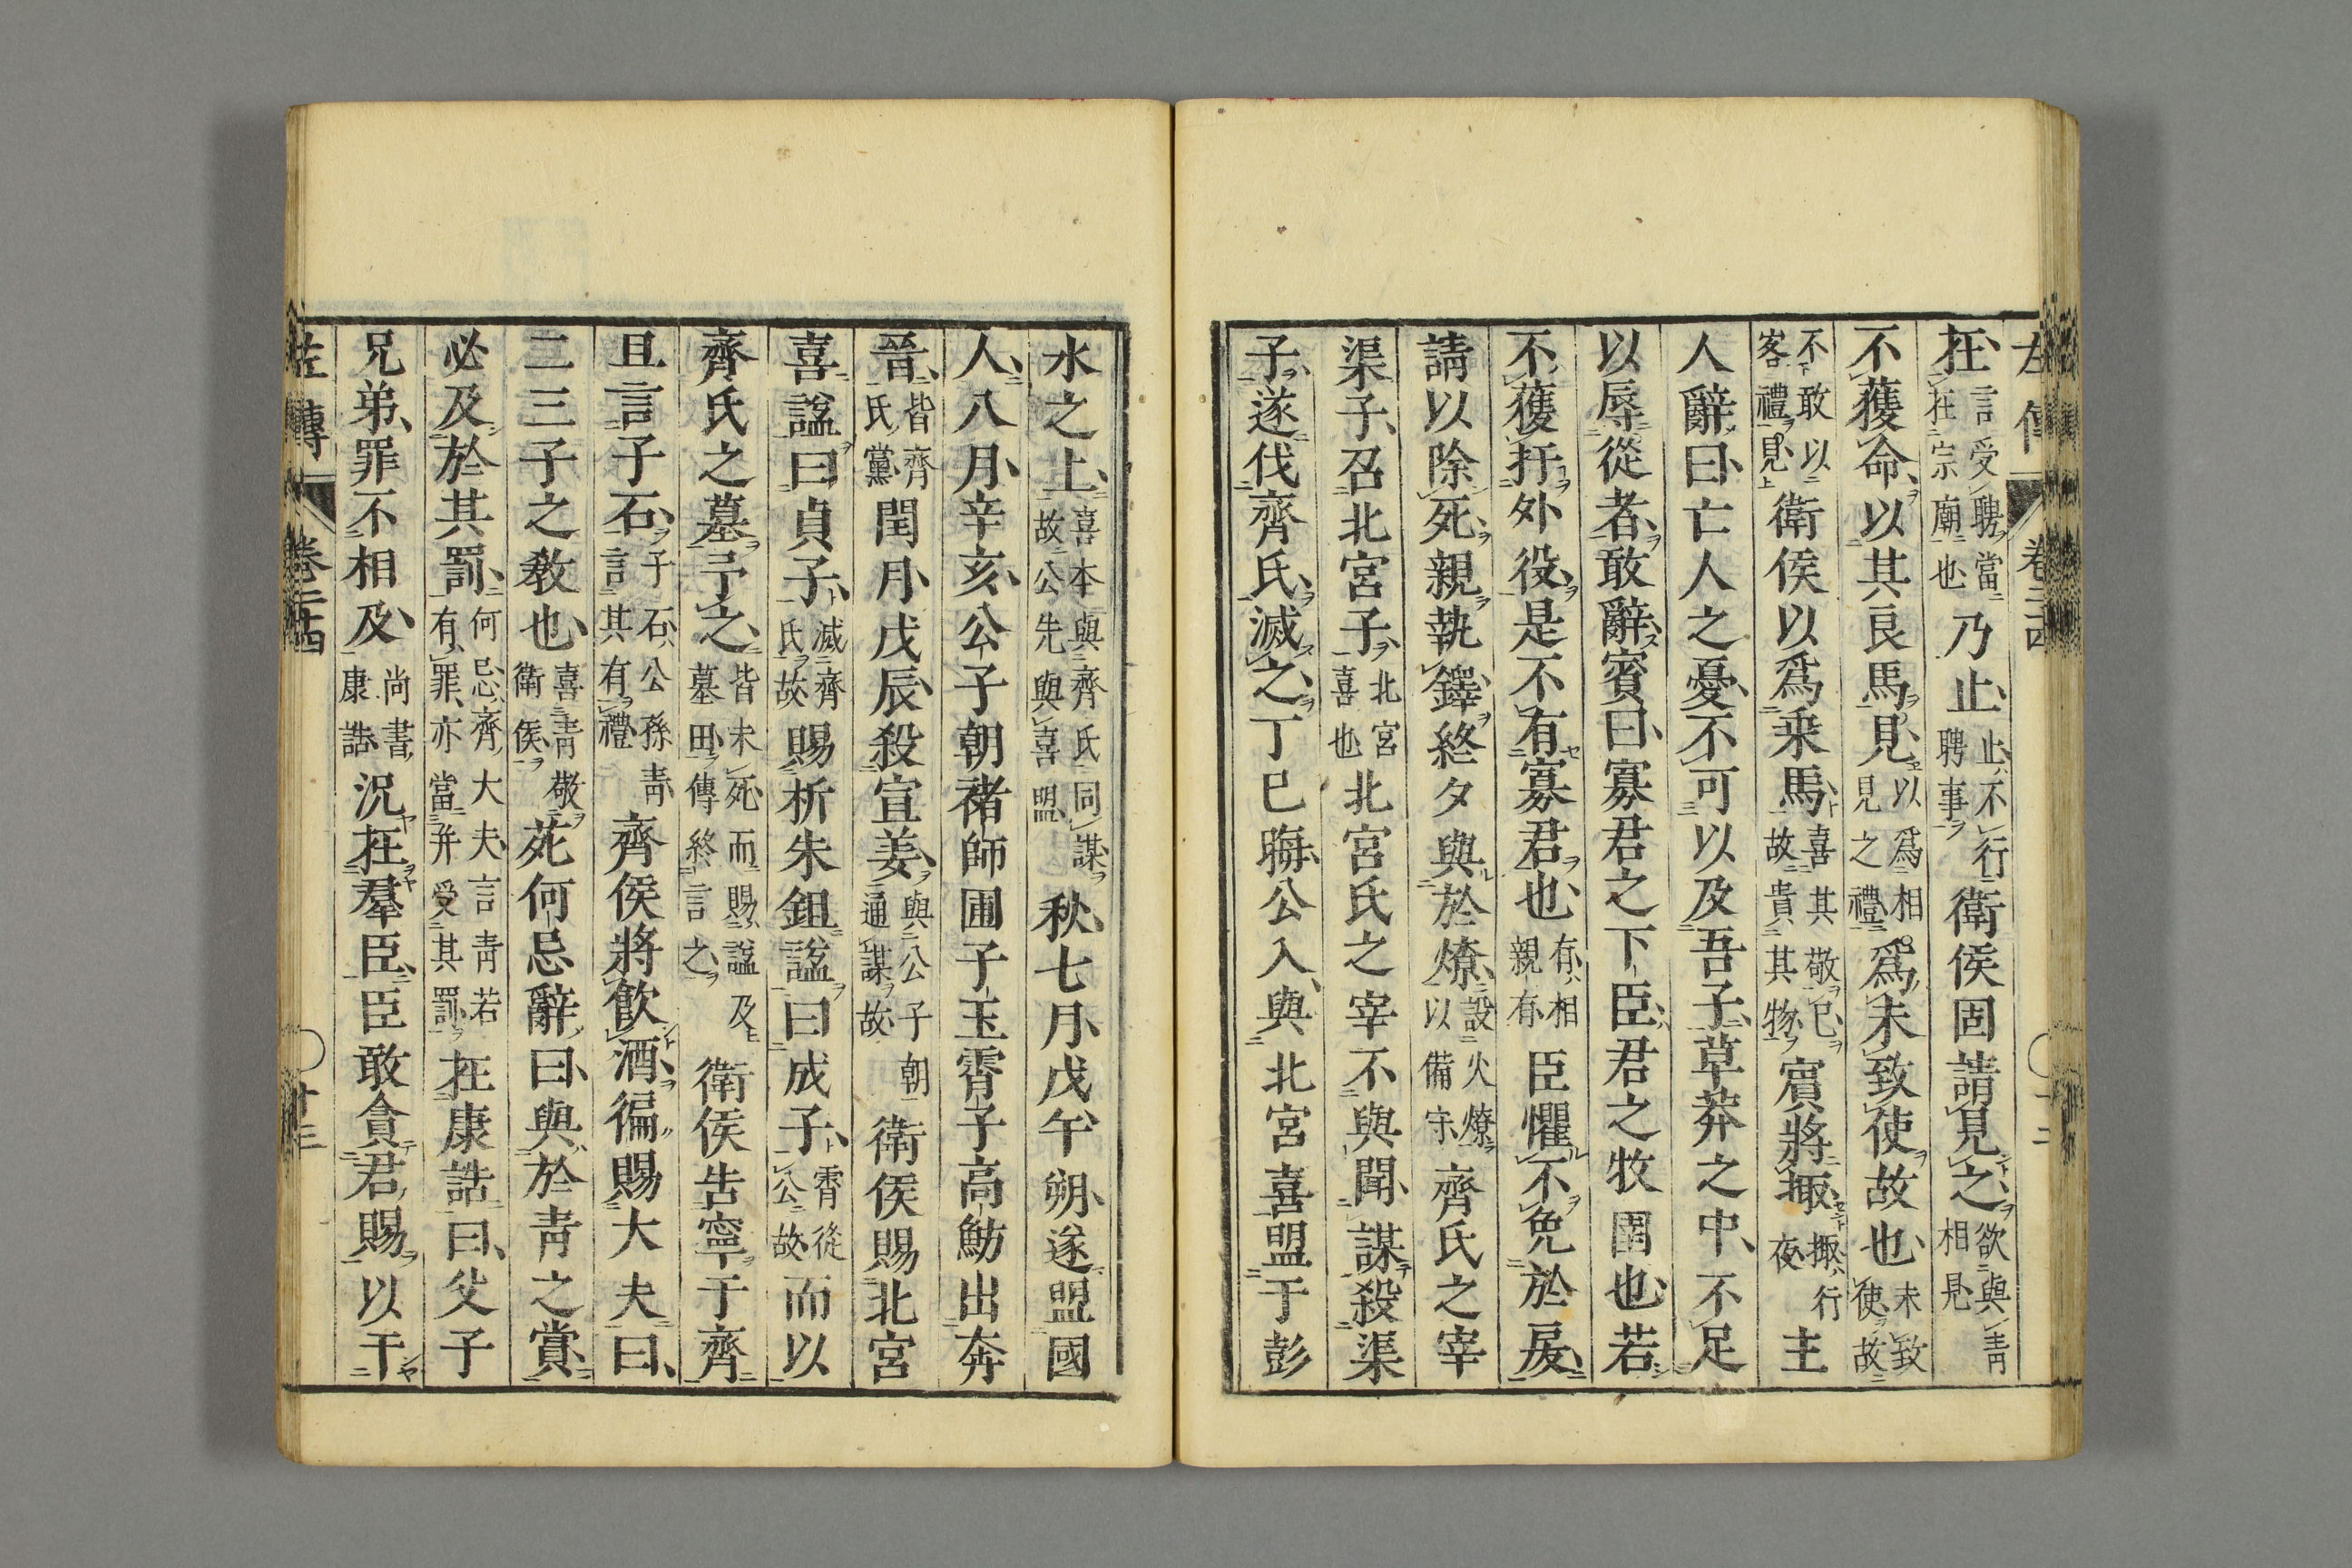 左傳 卷二四
在言受聘當在宗廟也乃止止不行聘事衛侯固請見之欲與青相見
不獲命以其良馬見以爲相見之禮爲未致使故也未致使故
不敢以客禮見衛侯以爲乘馬喜其敬己故貴其物賓將掫掫行夜主
人辭曰亡人之憂不可以及吾子草莽之中不足
以辱從者敢辭賓曰寡君之下臣君之牧圉也若
不獲扞外役是不有寡君也有相親有臣懼不免於戾
請以除死親執鐸終夕與於燎設火燎以備守齊氏之宰
渠子召北宮子北宮喜也北宮氏之宰不與聞謀殺渠
子遂伐齊氏滅之丁巳晦公入與北宮喜盟于彭
水之上喜本與齊氏同謀故公先與喜盟秋七月戊午朔遂盟國
人八月辛亥公子朝褚師圃子玉霄子高魴出奔
晉皆齊氏黨閏月戊辰殺宣姜與公子朝通謀故衛侯賜北宮
喜謚曰貞子滅齊氏故賜析朱鉏謚曰成子霄從公故而以
齊氏之墓予之皆未死而賜謚及墓田傳終言之衛侯告寧于齊
且言子石子石公孫青言其有禮齊侯將飮酒徧賜大夫曰
二三子之敎也喜青敬衛侯苑何忌辭曰與於青之賞
必及於其罰何忌齊大夫言青若有罪亦當幷受其罰在康誥曰父子
兄弟罪不相及尚書康誥況在羣臣臣敢貪君賜以干
左傳 卷二四 廿三